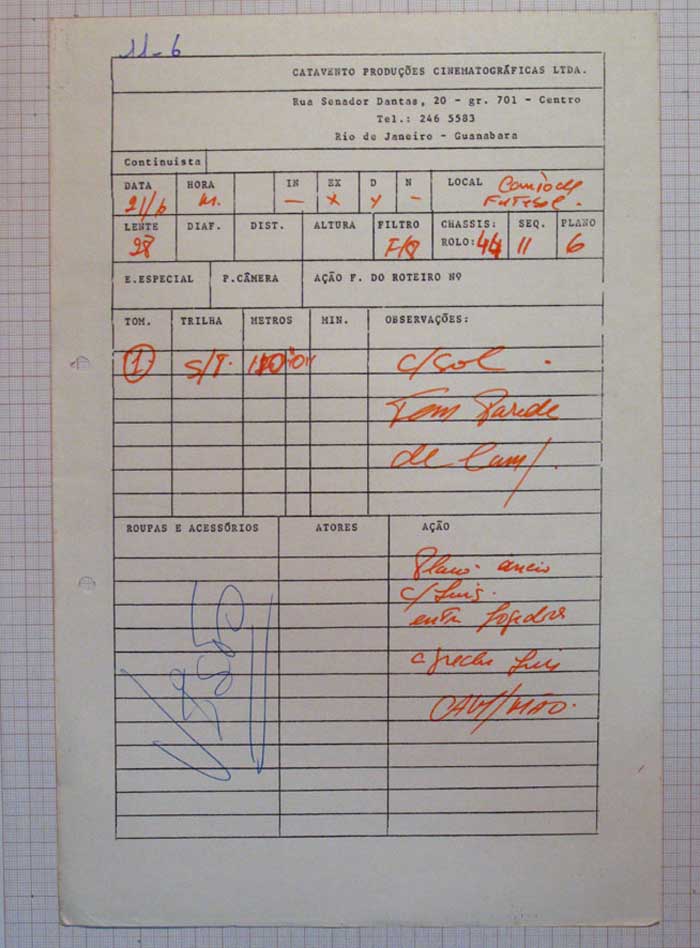 11-6
CATAVENTO PRODUÇÕES CINEMATOGRÁFICAS LTDA.
Rua Senador Dantas, 20 - gr. 701 - Centro
Tel.: 246 5583
Rio de Janeiro - Guanabara
Continuista
DATA HORA IN EX D N LOCAL
21/6 M. — x x —
LENTE DIAF. DIST. ALTURA FILTRO CHASSIS: SEQ. PLANO
28 ROLO: 44 11 6
E.ESPECIAL P.CÂMERA AÇÃO F. DO ROTEIRO Nº
TOM. TRILHA METROS MIN. OBSERVAÇÕES:
1 S/T. c/sol
Tem Parede
de
ROUPAS E ACESSÓRIOS ATORES AÇÃO
Plano
c/Luis.
entre
Luis
CAM/MÃO.